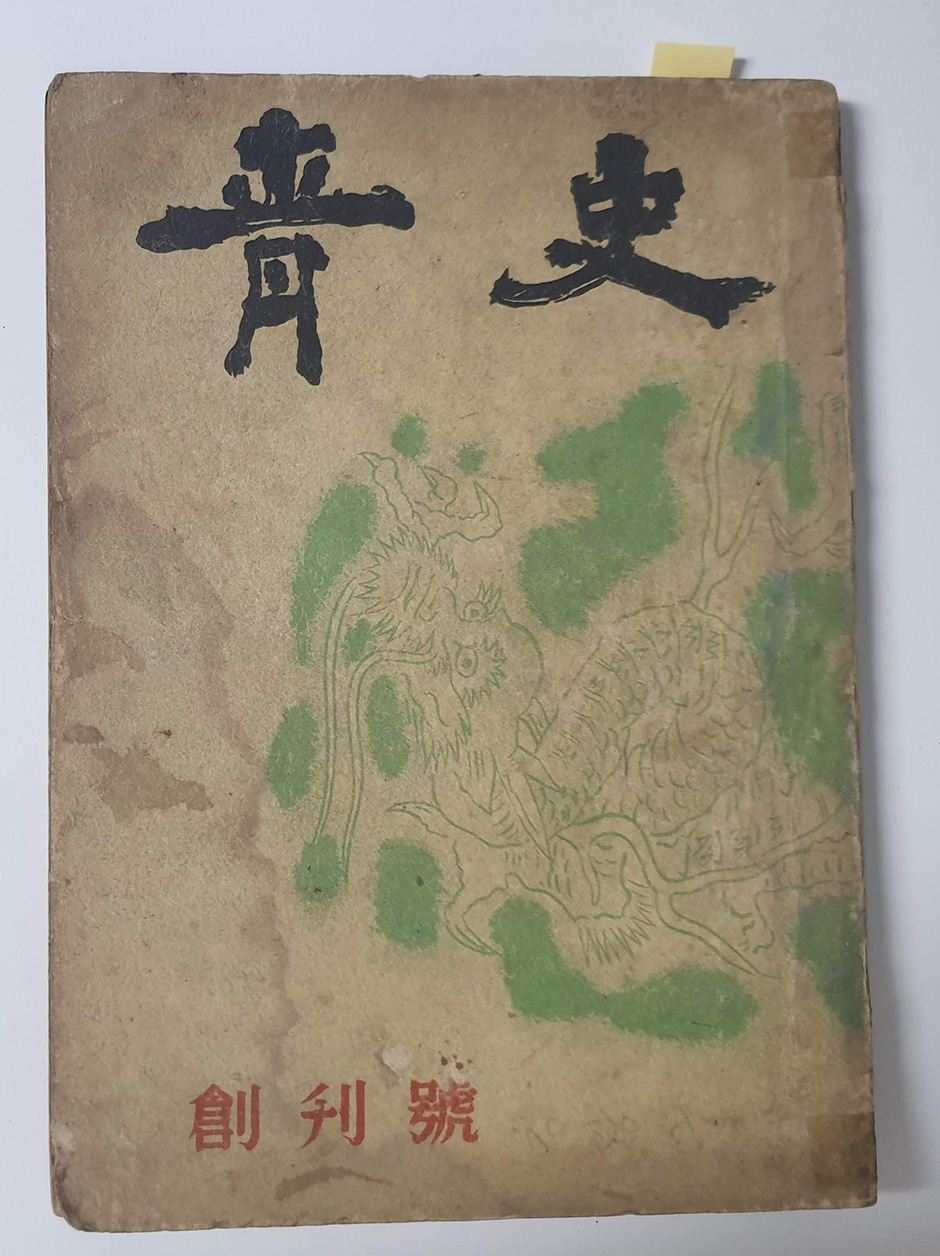 青史
創刊號